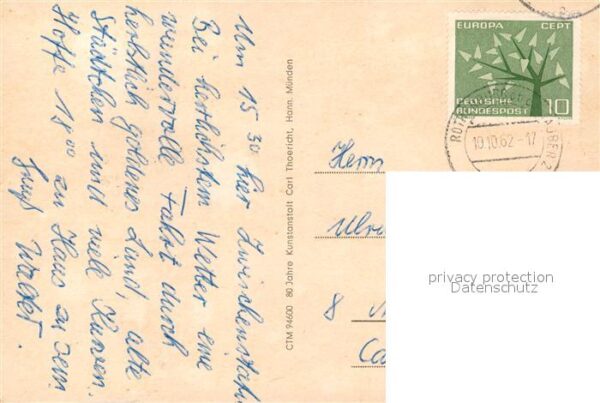 Um 15 30 hier Zwischenstation
Bei herrlichstem Wetter eine
wundervolle Fahrt durch
herbstlich goldenes Land, alte
Städtchen und viele Kurven.
Hoffe 18 00 an Haus zu sein
Gruß Walter.
CTM 94600 80 Jahre Kunstanstalt Carl Thoericht, Hann. Münden
EUROPA CEPT
DEUTSCHE
BUNDESPOST 10
ROTH
10.10.62-17
Herrn
Ulri
8
privacy protection
Datenschutz